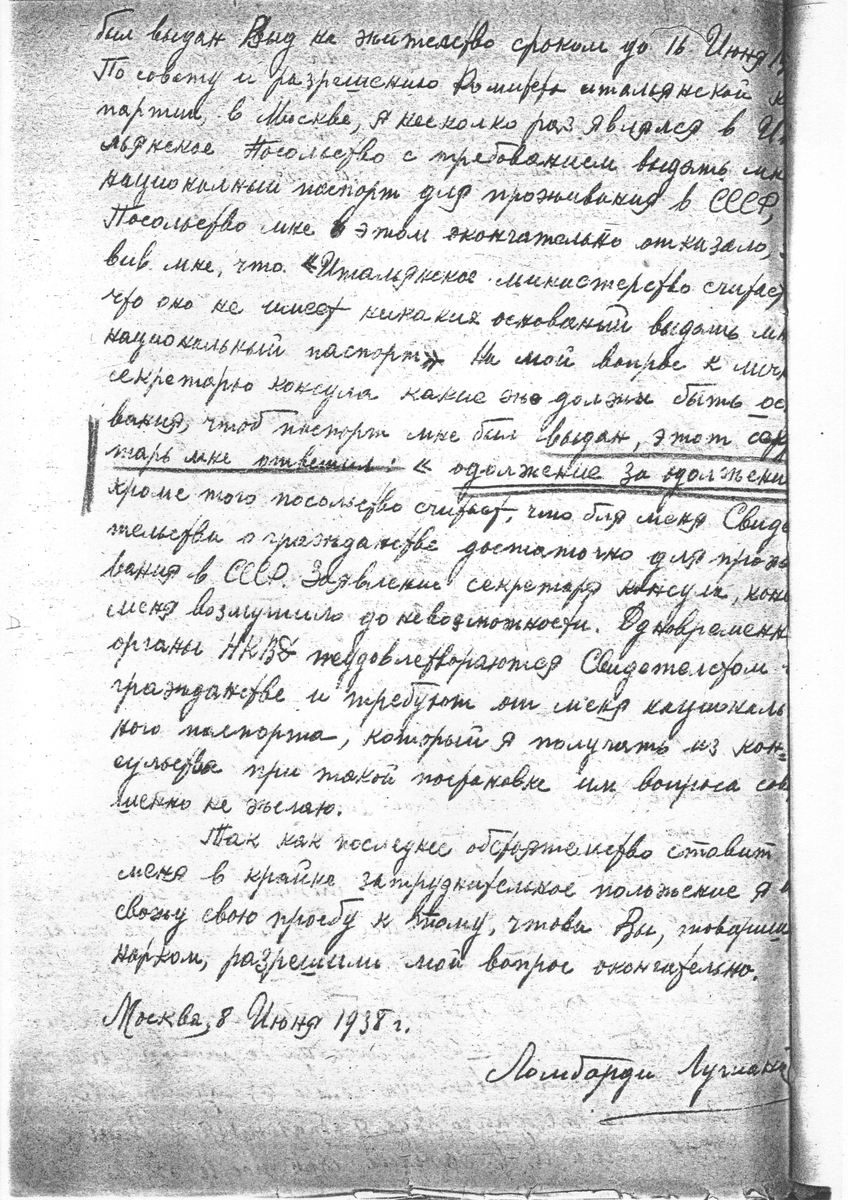 был выдан Вид на жительство сроком до 16 Июня
По совету и разрешению Комитета итальянской к
партии, в Москве, я несколко раз являлся в Ит
льянское Посольство с требованием выдать мн
национальный паспорт для проживания в СССР,
Посольство мне в этом окончательно отказало,
вив мне, что «Итальянское министерство считает
что оно не имеет никаких основаный выдать мн
национальный паспорт» На мой вопрос к личн
секретарю консула какие же должны быть ос
вания, чтоб паспорт мне был выдан, этот сек
тарь мне ответил: « одолжение за одолжени
кроме того посольство считает, что для меня Свиде
тельства о гражданстве достаточно для прожи
вания в СССР. Заявление секретаря консула, коне
меня возмутило до невозможности. Одновременн
органы НКВД неудовлетвораются Свидетелстом
гражданстве и требуют от меня националь
ного паспорта, который я получать из кон=
сульства при такой постановке им вопроса сов
шенно не желаю.
Так как последнее обстоятелство ставит
меня в крайне затруднителное положение я
свожу свою просбу к тому, чтоба Вы, товарищ
нарком, разрешили мой вопрос окончательно.
Москва, 8 Июня 1938 г.
Ломбарди Лучиан